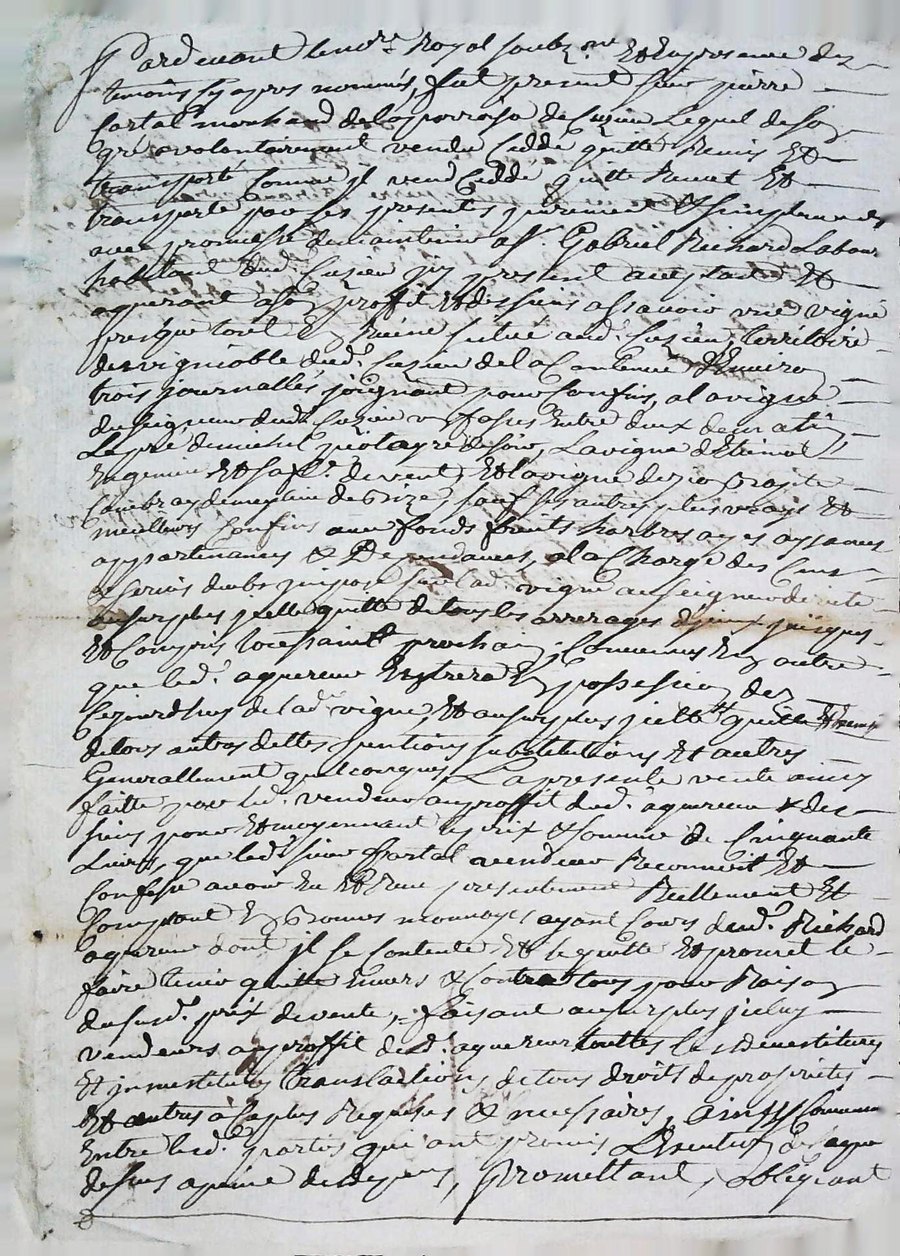 Pardevant le no.re Royal soubz.ne Et En presence des
temoins cy apres nommés, fut present sieur pierre
Cartal marchand de la parroisse de Cuzieu Lequel de son
gré a volontairement vendu cedde quitté Remis Et
transporté comme jl vend cedde quitte Remet Et
transporte par ses presents purement & simplement
avec promesse de maintenir a s.r Gabriel Richard Labour
habitant dud. Cuzieu jcy present acceptant Et
aquerant a son proffit Et des siens assavoir une vigne
presque tout En Ruine situé aud. Cuzieu, territoire
des vignoble dud. Cuzieu de la Contenue d'Environ
trois journallés joignant pour Confins, a la vigne
du seigneur dud. Cuzieu entre deux de matin
Le pré de de soir, La vigne d'Etienne
Et sa f.e de vent, Et la vigne de
de bize, sauf ses autres plus vrays Et
meilleurs Confins avec fonds fruits harbres ayes aysances
appartenances & Dependances, a la Charge des Cens
& servis deubs jmposé sur lad. vigne au seigneur
au surplus jcelle quitte de tous les arrerages d'jceux jusques
Et Compris toussaint prochain, Convenus En outre
que led. aquereur Entrera En possession des
Cejourd'huy de lad. vigne, Et au surplus jcelle quitte
de tous autres dettes pentions substitutions Et autres
Generallement quelconques, La presente vente ainsy
faitte par led. vendeur au proffit dud. aquereur & des
siens pour Et moyennant le prix & somme de Cinquante
Livres, que led. sieur Cartal vendeur Reconnoit Et
Confesse avoir Eu Et Reçu presentement Reellement Et
Comptant En bonnes monnoyes ayant Cours dud. Richard
aquereur dont jl se Contente Et le quitte Et promet le
faire tenir quitte Envers & Contre tous pour Raison
du susd. prix de vente, faisant au surplus jceluy
vendeurs au proffit dud. aquereur touttes les Devestitures
Et jnvestitures translactions de tous droits de proprietés
Et autres à ce plus Requises & necessaires, ainsy Convenu
Entre lesd. parties qui ont promis L'Executer
dessus a peine de depens, Promettant, obligeant